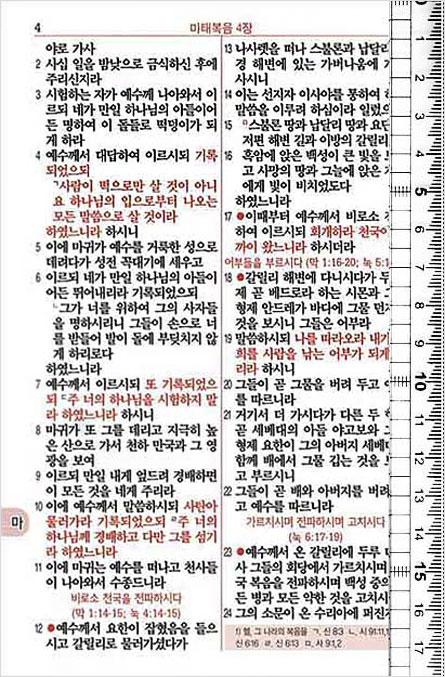 4
마태복음 4장
야로 가사
2 사십 일을 밤낮으로 금식하신 후에
주리신지라
3 시험하는 자가 예수께 나아와서 이
르되 네가 만일 하나님의 아들이어
든 명하여 이 돌들로 떡덩이가 되
게 하라
4 예수께서 대답하여 이르시되 기록
되었으되
ㄱ사람이 떡으로만 살 것이 아니
요 하나님의 입으로부터 나오는
모든 말씀으로 살 것이라
하였느니라 하시니
5 이에 마귀가 예수를 거룩한 성으로
데려다가 성전 꼭대기에 세우고
6 이르되 네가 만일 하나님의 아들이
어든 뛰어내리라 기록되었으되
ㄴ그가 너를 위하여 그의 사자들
을 명하시리니 그들이 손으로 너
를 받들어 발이 돌에 부딪치지 않
게 하리로다
하였느니라
7 예수께서 이르시되 또 기록되었으
되 ㄷ주 너의 하나님을 시험하지 말
라 하였느니라 하시니
8 마귀가 또 그를 데리고 지극히 높
은 산으로 가서 천하 만국과 그 영
광을 보여
9 이르되 만일 내게 엎드려 경배하면
이 모든 것을 네게 주리라
10 이에 예수께서 말씀하시되 사탄아
물러가라 기록되었으되 ㄹ주 너의
하나님께 경배하고 다만 그를 섬기
라 하였느니라
11 이에 마귀는 예수를 떠나고 천사들
이 나아와서 수종드니라
비로소 천국을 전파하시다
(막 1:14-15; 눅 4:14-15)
12 ●예수께서 요한이 잡혔음을 들으
시고 갈릴리로 물러가셨다가
마
13 나사렛을 떠나 스불론과 납달리
경 해변에 있는 가버나움에 가
사시니
14 이는 선지자 이사야를 통하여 하
말씀을 이루려 하심이라 일렀으
15 ㅁ스불론 땅과 납달리 땅과 요단
저편 해변 길과 이방의 갈릴리
16 흑암에 앉은 백성이 큰 빛을 보
고 사망의 땅과 그늘에 앉은 자
에게 빛이 비치었도다
하였느니라
17 ●이때부터 예수께서 비로소 전
하여 이르시되 회개하라 천국이
까이 왔느니라 하시더라
어부들을 부르시다 (막 1:16-20; 눅 5:1
18 ●갈릴리 해변에 다니시다가 두
제 곧 베드로라 하는 시몬과 그
형제 안드레가 바다에 그물 던지
것을 보시니 그들은 어부라
19 말씀하시되 나를 따라오라 내가
희를 사람을 낚는 어부가 되게
리라 하시니
20 그들이 곧 그물을 버려 두고 예
를 따르니라
21 거기서 더 가시다가 다른 두 형
곧 세베대의 아들 야고보와 그
형제 요한이 그의 아버지 세베대
함께 배에서 그물 깁는 것을 보
고 부르시니
22 그들이 곧 배와 아버지를 버려
고 예수를 따르니라
가르치시며 전파하시며 고치시다
(눅 6:17-19)
23 ●예수께서 온 갈릴리에 두루 다
사 그들의 회당에서 가르치시며
국 복음을 전파하시며 백성 중의
든 병과 모든 약한 것을 고치시니
24 그의 소문이 온 수리아에 퍼진지
1) 헬, 그 나라의 복음을 ㄱ. 신 8:3 ㄴ. 시 91:11,1
신 6:16 ㄹ. 신 6:13 ㅁ. 사 9:1,2
1
2
3
4
5
6
7
8
9
10
11
12
13
14
15
16
17